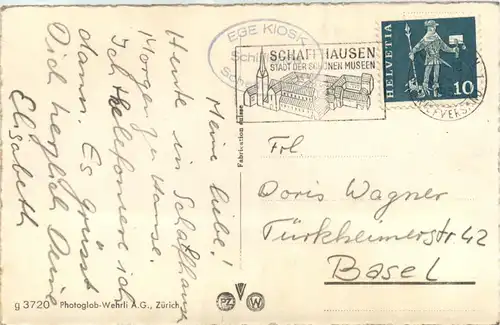 Meine Liebe!
Heute in Schaffhausen
Morgen zu Hause.
Ich telefoniere dir
dann. Es grüsst
Dich herzlich Deine
Elisabeth
EGE KIOSK
Schiff
Scha
SCHAFFHAUSEN
STADT DER SCHÖNEN MUSEEN
HELVETIA
10
BRIEFVERSAND
Fabrication suisse
Frl.
Doris Wagner
Türkheimerstr 42
Basel
g 3720 Photoglob-Wehrli A.G., Zürich
PZ W